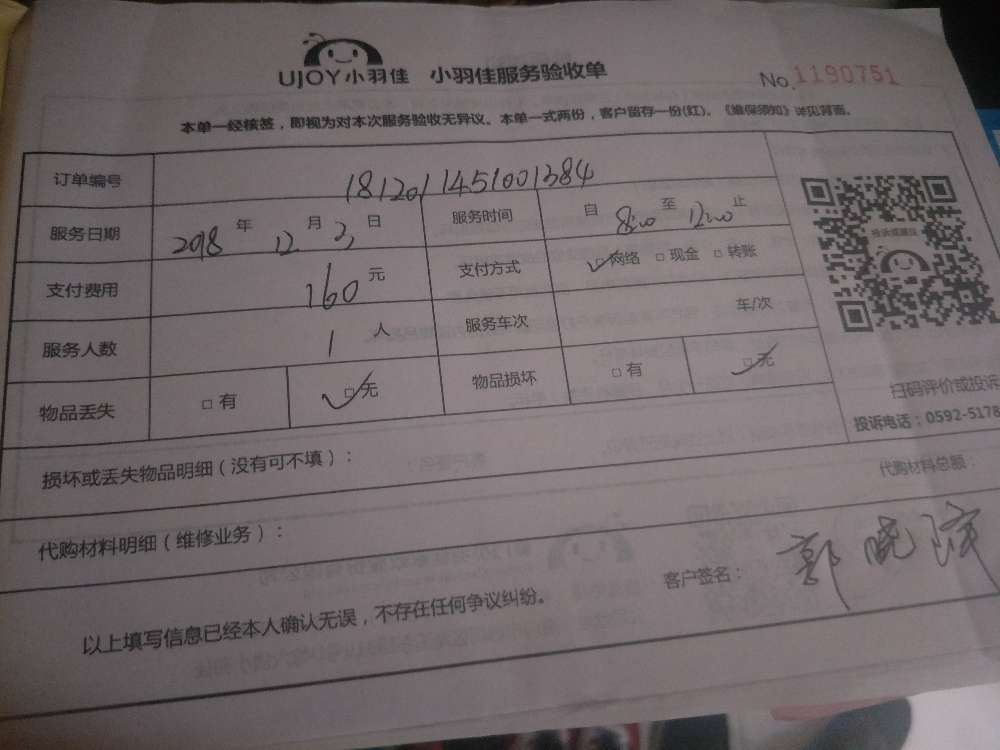 UJOY小羽佳 小羽佳服务验收单 No.1190751
本单一经核签，即视为对本次服务验收无异议。本单一式两份，客户留存一份(红)。《维保须知》详见背面。
订单编号 1812011451001384
服务日期 2018年12月3日 服务时间 自8:00至12:00止
支付费用 160元 支付方式 ☑网络 □现金 □转账
服务人数 1人 服务车次 车/次
物品丢失 □有 ☑无 物品损坏 □有 ☑无
投诉或建议
扫码评价或投诉
投诉电话：0592-5178
损坏或丢失物品明细（没有可不填）：
代购材料明细（维修业务）： 代购材料总额：
以上填写信息已经本人确认无误，不存在任何争议纠纷。 客户签名：郭晓